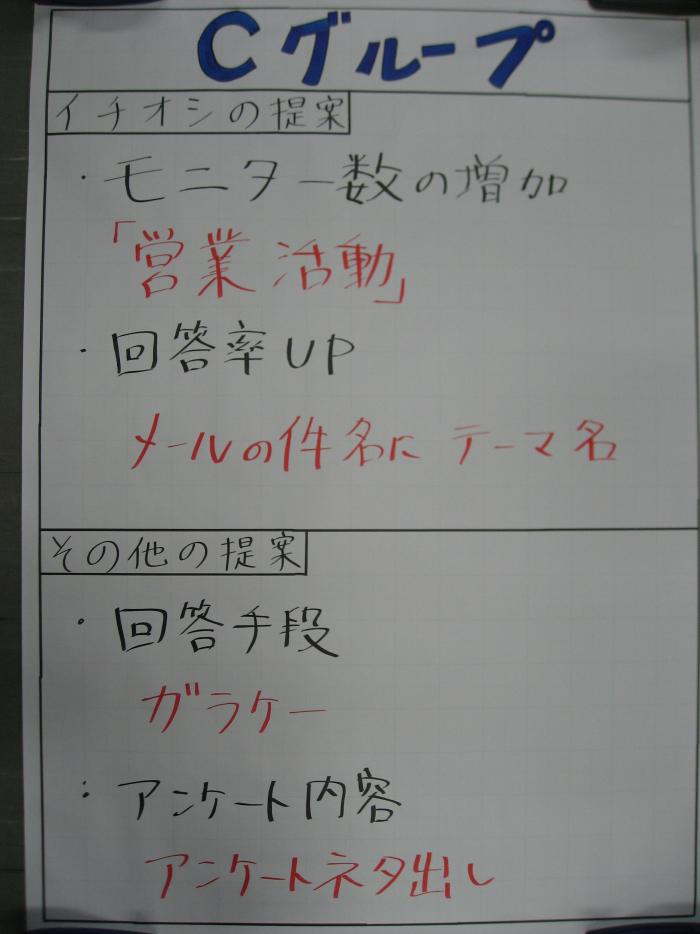 Cグループ
イチオシの提案
・モニター数の増加
「営業活動」
・回答率UP
メールの件名に テーマ名
その他の提案
・回答手段
ガラケー
・アンケート内容
アンケートネタ出し